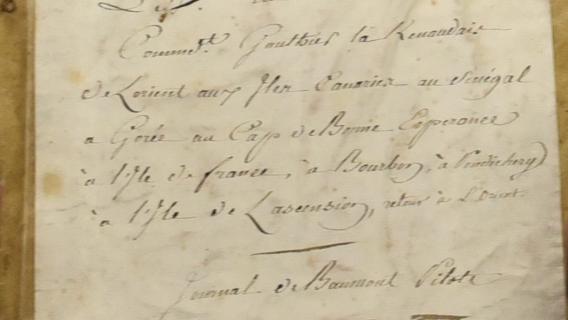 Command.t Gouthier la Renaudais
de Lorient aux Iles Canaries au Sénégal
a Gorée au Cap de Bonne Esperance
à l'Isle de france, à Bourbon, à Pondichery
à l'Isle de Lascension, retour à L'Orient.
Journal de Baumont Pilote